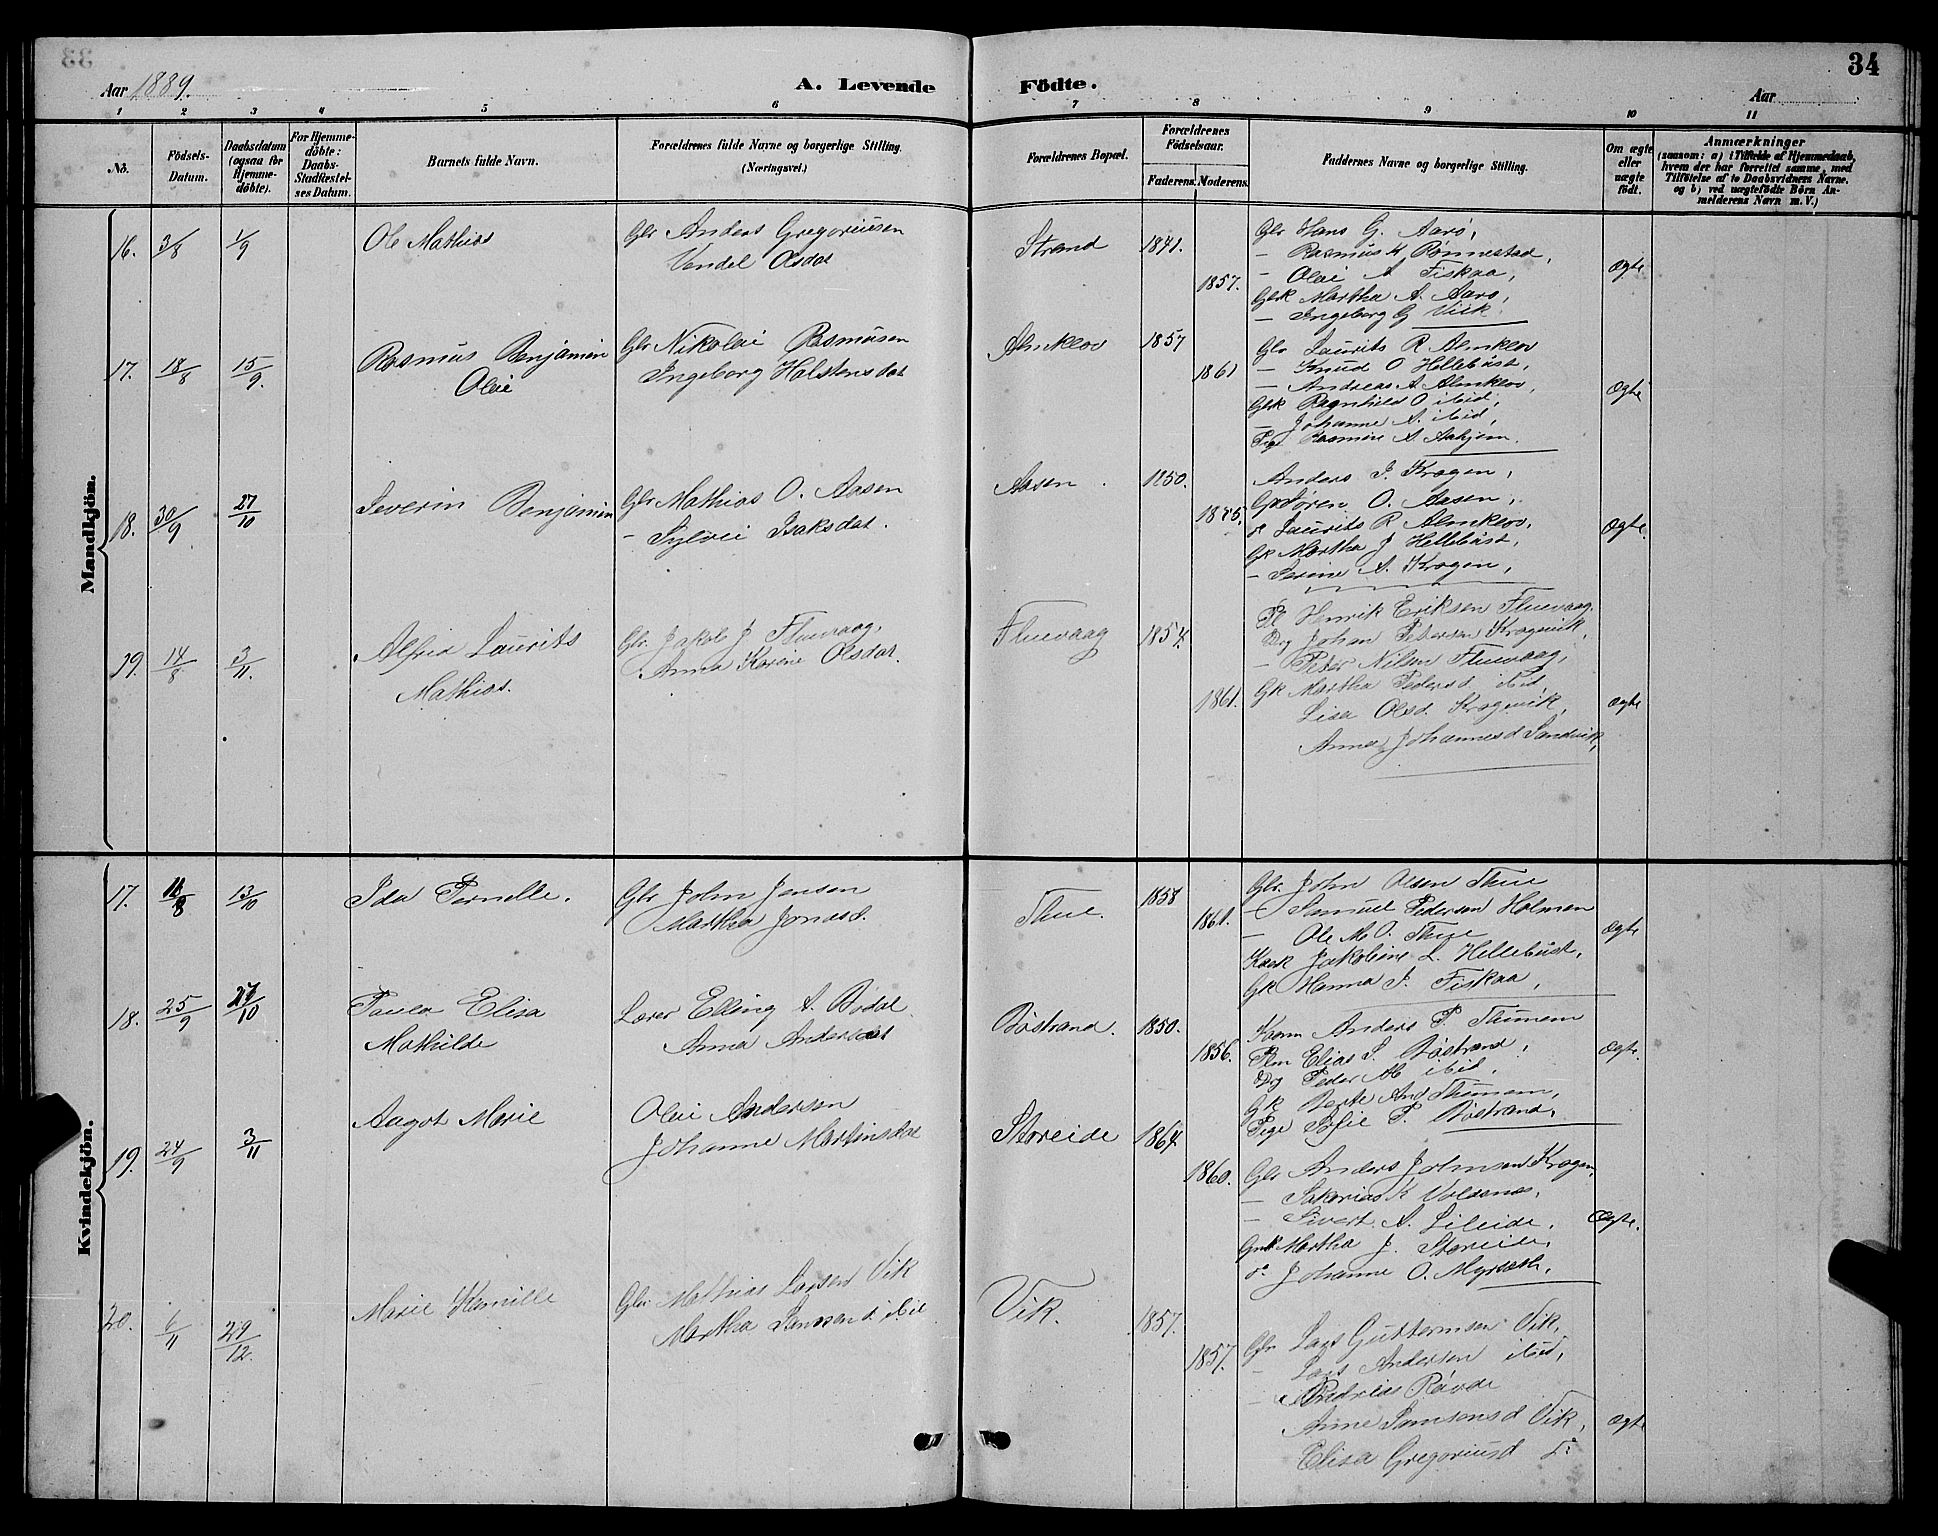 33
34
Aar 1889.
A. Levende
Födte.
Aar
1 2 3 4 5 6 7 8 9 10 11
No.
Födsels-
Datum.
Daabsdatum
(ogsaa for
Hjemme-
döbte).
For Hjemme-
döbte:
Daabs-
Stadfæstel-
ses Datum.
Barnets fulde Navn.
Forældrenes fulde Navne og borgerlige Stilling.
(Næringsvei.)
Forældrenes Bopæl.
Forældrenes
Födselsaar.
Faderens. Moderens.
Faddernes Navne og borgerlige Stilling.
Om ægte
eller
uægte
födt.
Anmærkninger
(saasom: a) i Tilfælde af Hjemmedaab,
hvem der har forrettet samme, med
Tilföielse af to Daabsvidners Navne.
og b) ved uægtefödte Börn An-
melderens Navn m. V.)
Mandkjön.
16. 3/8 1/9 Ole Mathias
Gbr Anders Gregoriusen
Vendel Olsdat
Strand 1841.
1857.
Gbr Hans G. Aarö,
- Rasmus K Rönnestad,
- Olai A Fiskaa,
Gbk Martha A. Aarö,
- Ingeborg G Viik.
Ægte
17. 18/8 15/9. Rasmus Benjamin
Olai
Gbr Nikolai Rasmusen
Ingeborg Holstensdat
Almklov 1857
1861
Gbr Laurits R. Almklov
- Knud O Hellebust,
- Andreas A Almklov,
Gbk Ragnhild O ibid,
- Johanne A. ibid,
Pige Rasmine A. Aahjem.
Ægte
18. 30/9 27/10 Severin Benjamin
Gbr Mathias O. Aasen
- Sylvei Isaksdat.
Aasen. 1850.
1845.
Anders J. Kragen,
Gb Sören O. Aasen,
do Laurits R. Almklov,
Gk Martha J Hellebust,
- Serine A. Kragen,
Ægte.
19. 14/8 3/11. Alfred Laurits
Mathias.
Gbr. Jakob J Fluevaag,
Anna Karine Olsdat.
Fluevaag 1854.
1861.
Pl Henrik Eriksen Fluevaag.
Drg Johan Petersen Kragevik,
- Peter Nilsen Fluevaag,
Gk Martha Pedersd ibid
Lisa Olsd. Kragevik,
Anna Johannesd Sandvik,
Ægte
Kvindekjön.
17. 11/8 13/10 Ida Pernelle.
Gbr John Jensen
Martha Jonasd.
Thue. 1858
1861.
Gbr. John Olsen Thue
- Samuel Pedersen Holmen
- Ole M. O. Thue
Kaark Jakobine L. Hellebust,
Gk Hanna J. Fiskaa,
Ægte
18. 25/9 27/10 Paula Elisa
Mathilde
Lærer Elling A. Bödal.
Anna Andersdat
Böstrand. 1850.
1856.
Kaarm Anders P. Thunem
Plm Elias S. Böstrand,
Drg Peder M. ibid.
Gk Berte And Thunem,
Pige Sofie P. Böstrand.
Ægte.
19. 24/9 3/11 Aagot Marie
Olai Andersen
Johanne Martinsdat
Storeide 1864
1860.
Gbr Anders Johnsen Kragen,
- Sakarias K Voldsnes,
- Sivert A. Lileide,
Gmk Martha J. Storeide,
do Johanne O. Myrseth.
Ægte.
20. 6/11 29/12. Marie Kamille
Gbr Mathias Larsen Vik
Martha Samsonsd. ibid
Vik. 1857.
1857.
Gbr Lars Guttormsen Vik,
- Lars Andersen ibid,
- Andreas Råvde
Anne Samsonsd Vik,
Elisa Gregoriusd do
Ægte